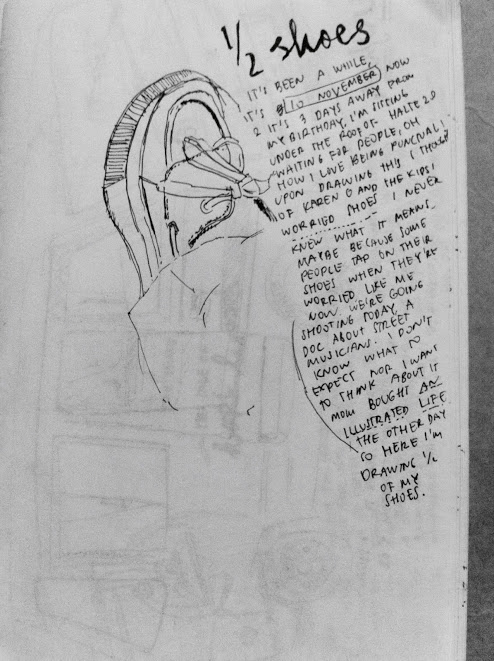 1/2 shoes
IT'S BEEN A WHILE,
IT'S 10 NOVEMBER NOW
& IT'S 3 DAYS AWAY FROM
MY BIRTHDAY. I'M SITTING
UNDER THE ROOF OF HALTE 20
WAITING FOR PEOPLE, OH
HOW I LOVE BEING PUNCTUAL!
UPON DRAWING THIS I THOUGHT
OF KAREN O AND THE KIDS'
WORRIED SHOES I NEVER
KNEW WHAT IT MEANS.
MAYBE BECAUSE SOME
PEOPLE TAP ON THEIR
SHOES WHEN THEY'RE
WORRIED LIKE ME
NOW. WE'RE GOING
SHOOTING TODAY, A
DOC ABOUT STREET
MUSICIANS. I DON'T
KNOW WHAT TO
EXPECT NOR I WANT
TO THINK ABOUT IT
MOM BOUGHT AN
ILLUSTRATED LIFE
THE OTHER DAY
SO HERE I'M
DRAWING 1/2
OF MY
SHOES.